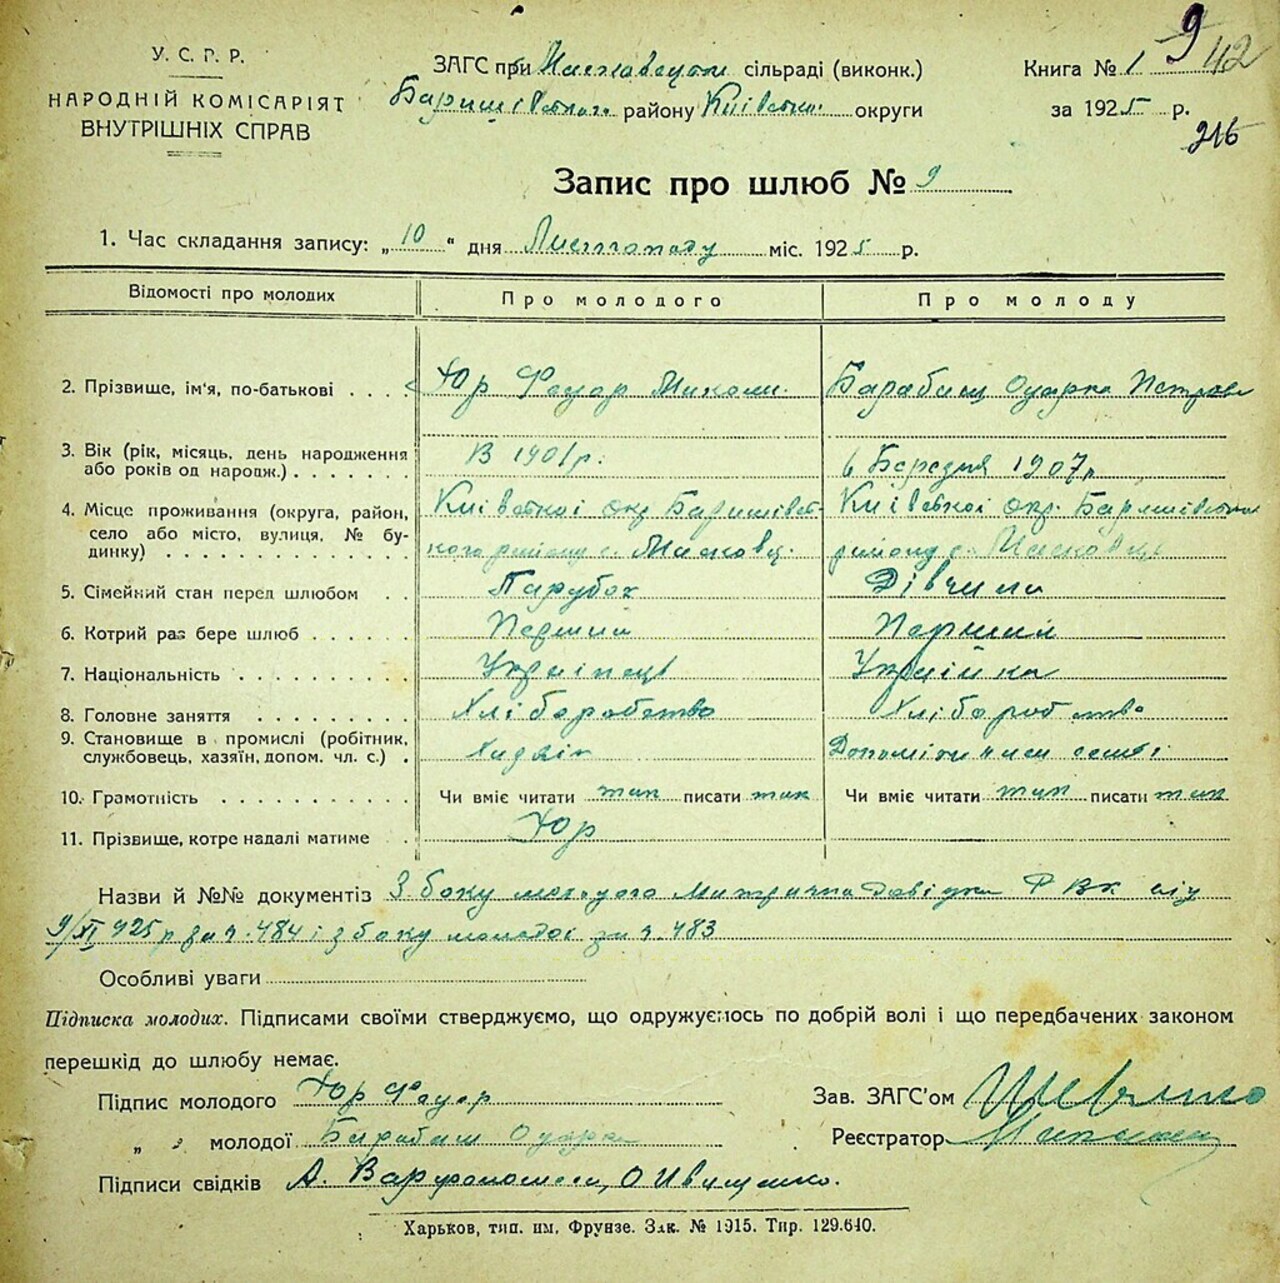 9 42
У. С. Р. Р.
НАРОДНІЙ КОМІСАРІЯТ
ВНУТРІШНІХ СПРАВ
ЗАГС при сільраді (виконк.)
Баришівського району Київськ. округи
Книга № 1
за 1925 р.
216
Запис про шлюб № 9
1. Час складання запису: „10“ дня Листопаду міс. 1925 р.
Відомості про молодих Про молодого Про молоду
2. Прізвище, ім'я, по-батькові . . . . Юр Федор Микол. Барабаш Одарка Петров
3. Вік (рік, місяць, день народження
або років од народж.) . . . . . . В 1901 р. 6 Березня 1907 р
4. Місце проживання (округа, район,
село або місто, вулиця, № бу-
динку) . . . . . . . . . . . .
Київської окр Баришівсь-
кого району с. Масковц.
Київської окр. Баришівськ
району с. Масковці
5. Сімейний стан перед шлюбом . . Парубок Дівчина
6. Котрий раз бере шлюб . . . . . . Перший Перший
7. Національність . . . . . . . . . . Українець Українка
8. Головне заняття . . . . . . . . . Хліборобство Хліборобство
9. Становище в промислі (робітник,
службовець, хазяїн, допом. чл. с.) . Хазяін семьі
10. Грамотність . . . . . . . . . . . Чи вміє читати так писати так Чи вміє читати так писати так
11. Прізвище, котре надалі матиме . Юр
Назви й №№ документів З боку молодого Метрична Довідка РВК від
9/XI 925 р за ч. 484 і з боку молодої за ч. 483
Особливі уваги
Підписка молодих. Підписами своїми стверджуємо, що одружуємось по добрій волі і що передбачених законом
перешкід до шлюбу немає.
Підпис молодого Юр Федор
„ „ молодої Барабаш Одарка
Зав. ЗАГС'ом
Реєстратор
Підписи свідків А. О Іващенко.
Харьков, тип. им. Фрунзе. Зак. № 1915. Тир. 129.640.